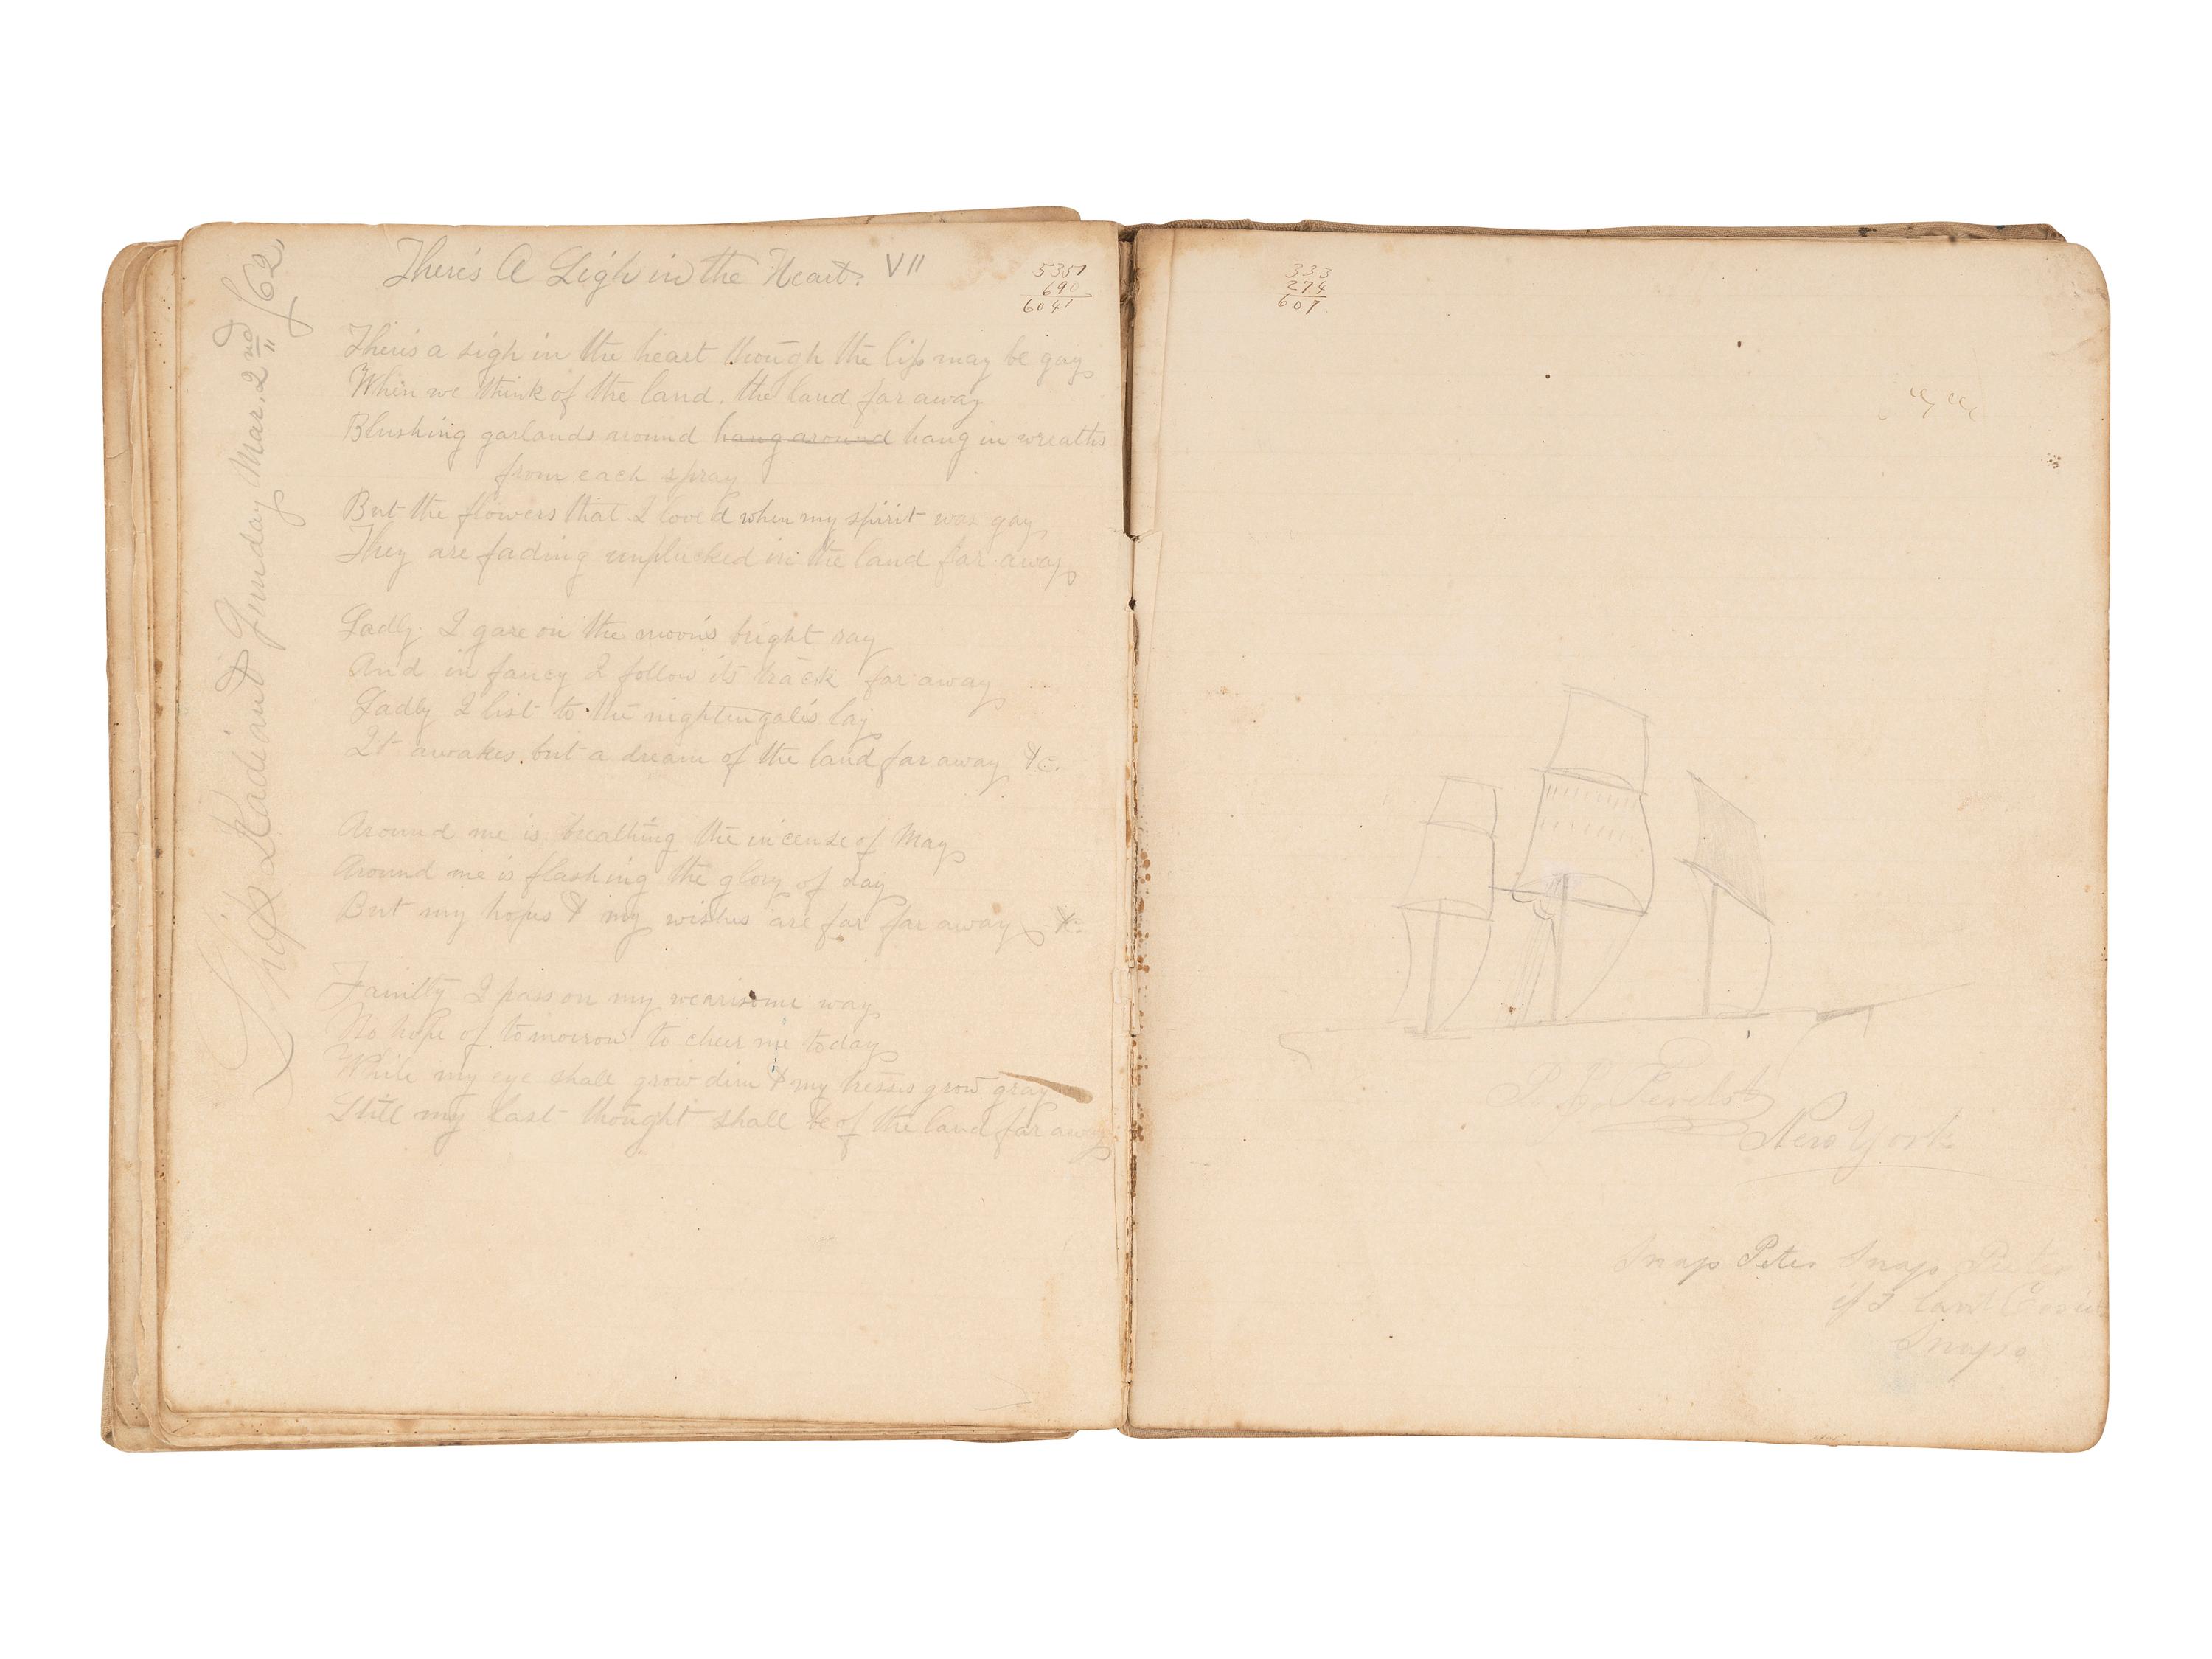 There's A Sigh in the Heart. VII
5351
690
6041
There's a sigh in the heart though the lip may be gay
When we think of the land. the land far away
Blushing garlands around hang around hang in wreaths
from each spray
But the flowers that I loved when my spirit was gay
They are fading unplucked in the land far away
Sadly I gaze on the moon's bright ray
And in fancy I follow its track far away
Sadly I list to the nightingale's lay
It awakes but a dream of the land far away &c.
Around me is breathing the incense of May
Around me is flashing the glory of day
But my hopes & my wishes are far far away &c.
Faintly I pass on my wearisome way
No hope of tomorrow to cheer me today
While my eye shall grow dim & my tresses grow gray
Still my last thought shall be of the land far away
Ship Radiant Sunday Mar. 2nd /62
333
274
607
New York
Snap Peter Snap Peter
if I
Snaps